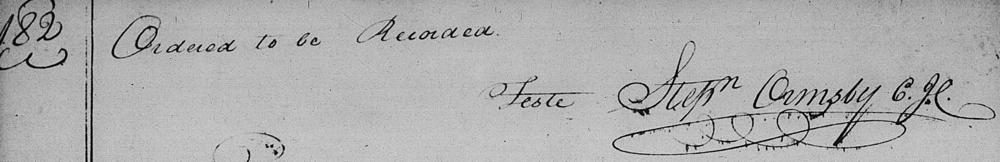 182
Ordered to be Recorded.
Teste Stepn Ormsby C.J.C.